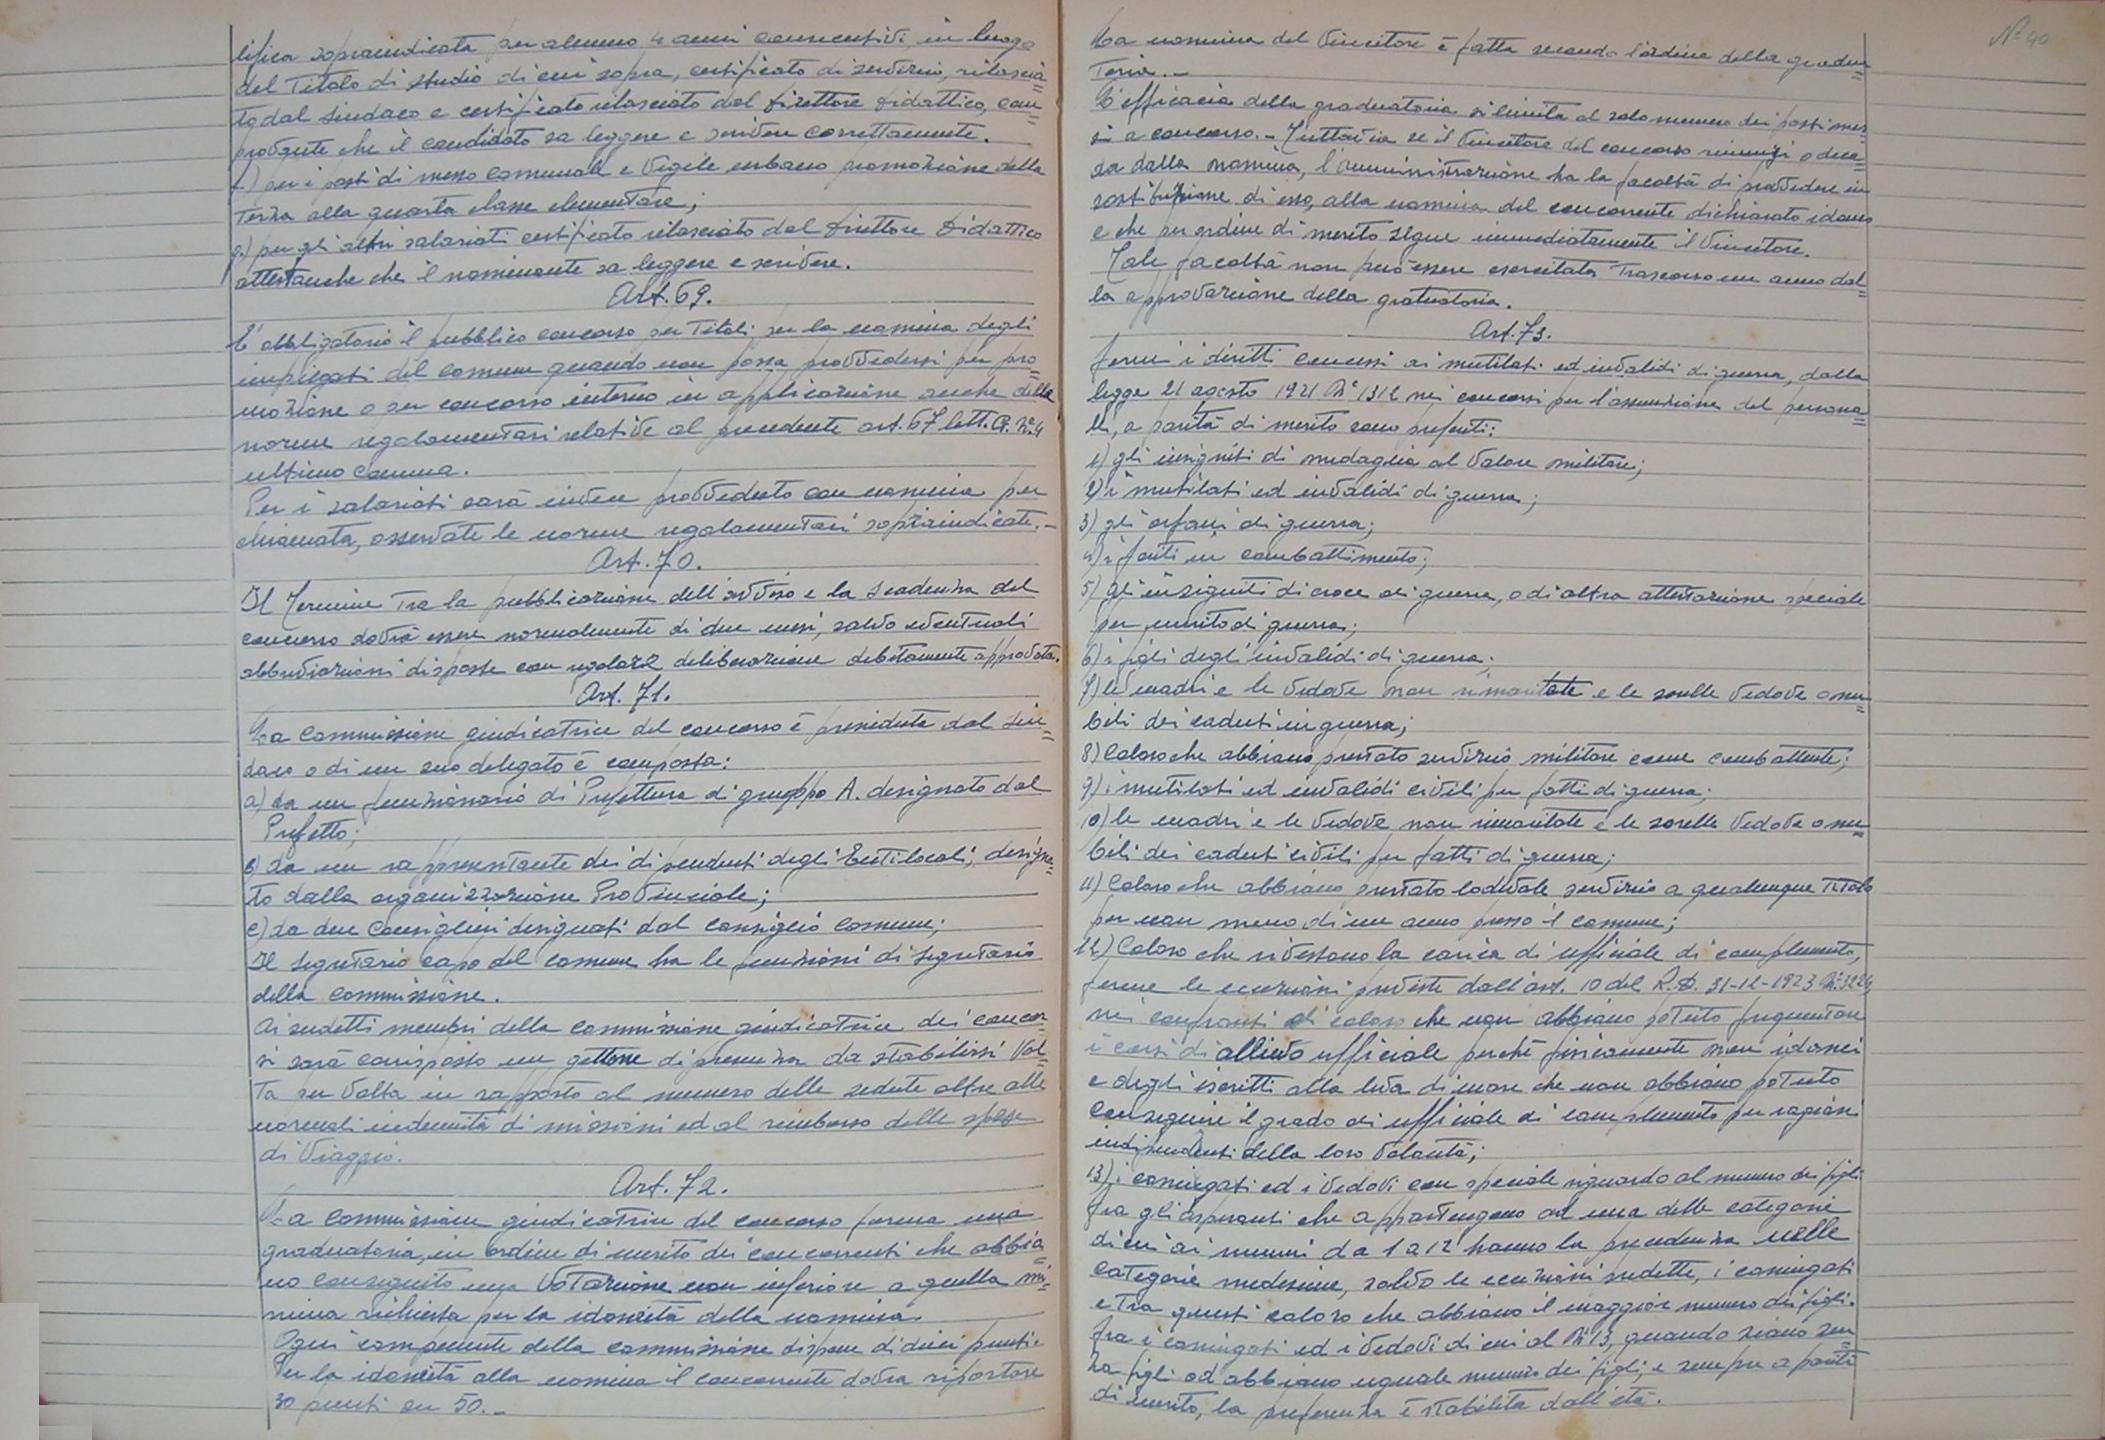 lifica sopraindicata per almeno 4 anni consecutivi, in luogo
del Titolo di studio di cui sopra, certificato di servizio, rilascia=
to dal Sindaco e certificato rilasciato dal Direttore Didattico, com=
provante che il candidato sa leggere e scrivere correttamente.
f.) per i posti di messo comunale e Vigile urbano promozione dalla
Terza alla quarta classe elementare;
g.) per gli altri salariati certificato rilasciato dal Direttore Didattico
attestanche che il nominante sa leggere e scrivere.
Art. 69.
E' obbligatorio il pubblico concorso per Titoli per la nomina degli
impiegati del comune quando non possa provvedersi per pro=
mozione o per concorso interno in applicazione anche delle
norme regolamentari relative al precedente art. 67 lett. A. N° 4
ultimo comma.
Per i salariati sarà invece provveduto con nomina per
chiamata, osservate le norme regolamentari sopraindicate.-
Art. 70.
Il Termine Tra la pubblicazione dell'avviso e la scadenza del
concorso dovrà essere normalmente di due mesi, salvo eventuali
abbreviazioni disposte con regolare deliberazione debitamente approvata.
Art. 71.
La Commissione giudicatrice del concorso è presieduta dal Sin=
daco o di un suo delegato è composta:
a) da un funzionario di Prefettura di gruppo A. designato dal
Prefetto;
b) da un rappresentante dei dipendenti degli Enti locali, designa=
to dalla organizzazione Provinciale;
c) da due Consiglieri designati dal consiglio Comune;
Il Segretario capo del comune ha le funzioni di Segretario
della Commissione.
Ai sudetti membri della commissione giudicatrice dei concor=
si sarà corrisposto un gettone di presenza da stabilirsi Vol=
Ta per Volta in rapporto al numero delle sedute oltre alle
normali indennità di missioni ed al rimborso delle spese
di Viaggio.
Art. 72.
La Commissione giudicatrice del concorso forma una
graduatoria, in ordine di merito dei concorrenti che abbia=
no conseguito una Votazione non inferiore a quella mi=
nima richiesta per la idoneità della nomina.
Ogni componente della commissione dispone di dieci punti.
Per la idoneità alla nomina il concorrente dovrà riportare
30 punti su 50.-
N° 40
La nomina del Vincitore è fatta secondo l'ordine della gradua=
Toria.-
L'efficacia della graduatoria si limita al solo numero dei posti mes=
si a concorso.- Tuttavia se il Vincitore del concorso rinunzi o deca=
da dalla nomina, l'amministrazione ha la facoltà di provvedere in
sostituzione di esso, alla nomina del concorrente dichiarato idoneo
e che per ordine di merito segue immediatamente il Vincitore.
Tale facoltà non può essere esercitata Trascorso un anno dal=
la approvazione della graduatoria.
Art. 73.
Fermi i diritti concessi ai mutilati ed invalidi di guerra, dalla
legge 21 agosto 1921 N° 1312 nei concorsi per l'assunzione del persona=
le, a parità di merito sono preferiti:
1) gli insigniti di medaglia al Valore militare;
2) i mutilati ed invalidi di guerra;
3) gli orfani di guerra;
4) i feriti in combattimento;
5) gli insigniti di croce di guerra, o di altra attestazione speciale
per merito di guerra;
6) i figli degli invalidi di guerra;
7) le madri e le vedove non rimaritate e le sorelle vedove o nu=
bili dei caduti in guerra;
8) Coloro che abbiano prestato servizio militare come combattente;
9) i mutilati ed invalidi civili per fatti di guerra;
10) le madri e le vedove non rimaritate e le sorelle vedove o nu=
bili dei caduti civili per fatti di guerra;
11) Coloro che abbiano prestato lodevole servizio a qualunque Titolo
per non meno di un anno presso il comune;
12) Coloro che rivestono la carica di ufficiale di complemento,
ferme le eccezioni previste dall'art. 10 del R.D. 31-12-1923 N°
nei confronti di coloro che non abbiano potuto frequentare
i corsi di allievo ufficiale perché fisicamente non idonei
e degli iscritti alla leva di mare che non abbiano potuto
conseguire il grado di ufficiale di complemento per ragioni
indipendenti della loro volontà;
13) i coniugati ed i vedovi con speciale riguardo al numero dei figli.
fra gli aspiranti che appartengono ad una delle categorie
di cui ai numeri da 1 a 12 hanno la precedenza nelle
categorie medesime, salvo le eccezioni sudette, i coniugati
e Tra questi coloro che abbiano il maggior numero dei figli.
fra i coniugati ed i vedovi di cui al N° 13, quando siano sen=
za figli od abbiano uguale numero dei figli, e sempre a parità
di merito, la preferenza è stabilita dall'età.